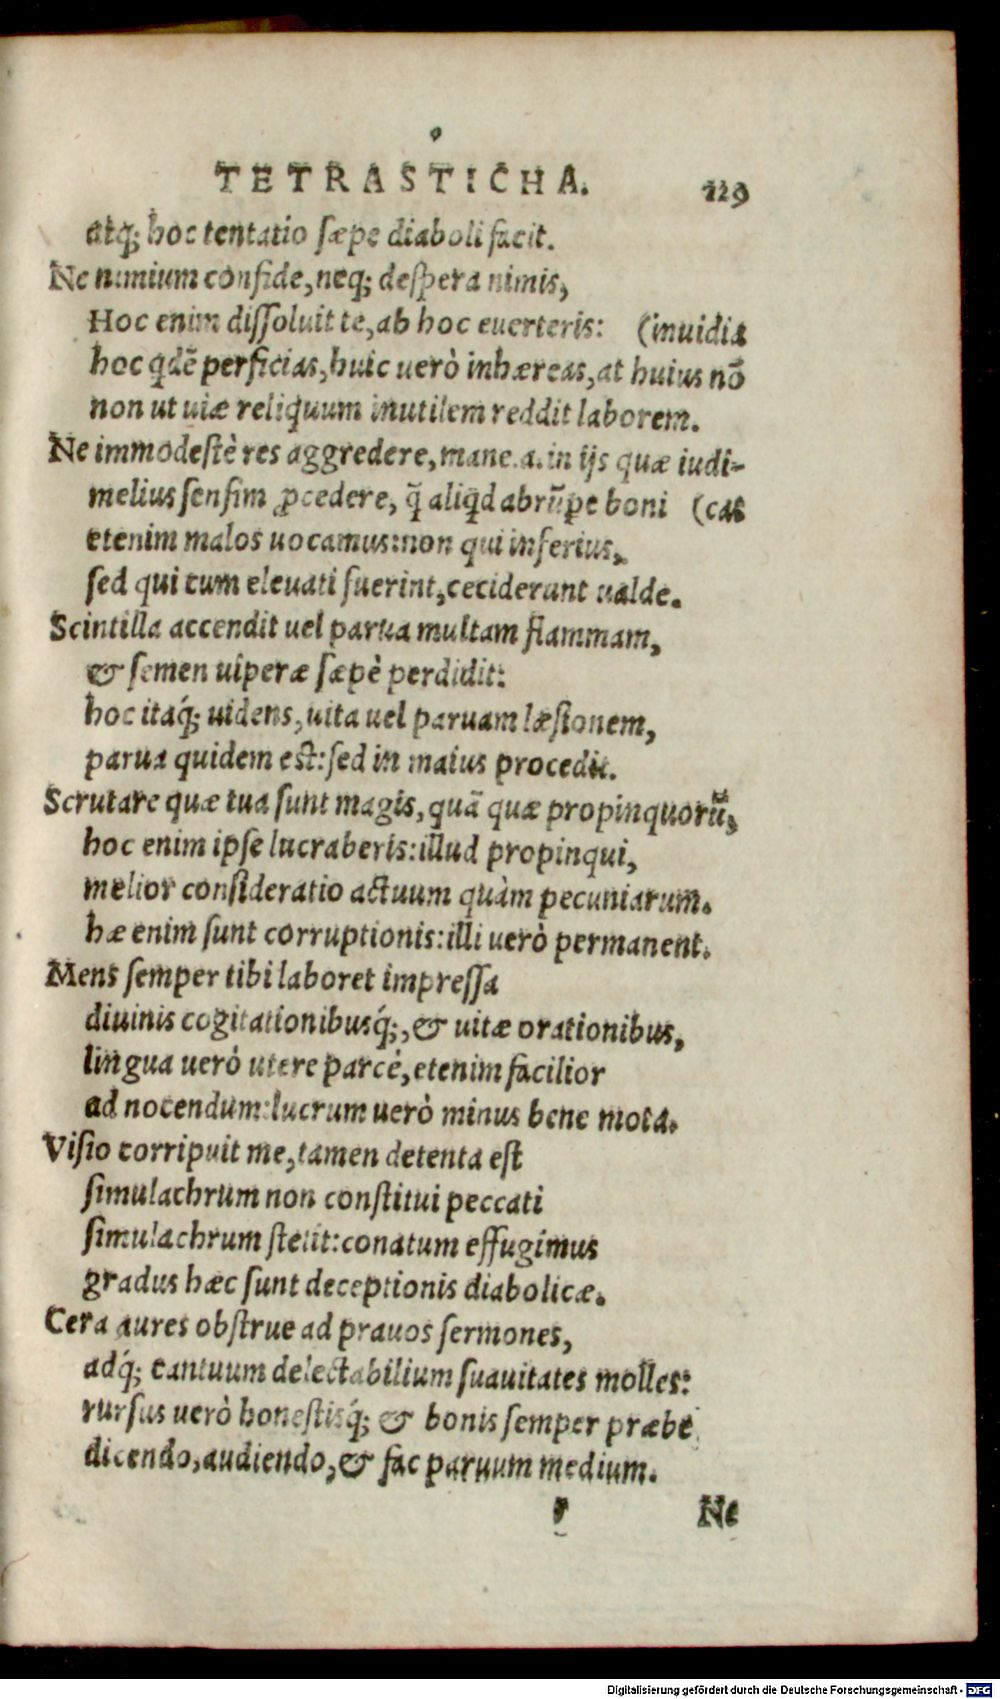 TETRASTICHA. 129
atq́; hoc tentatio sæpe diaboli facit.
Ne nimium confide, neq; despera nimis,
Hoc enim dissoluit te, ab hoc euerteris: (inuidia
hoc qdẽ perficias, huic uerò inhæreas, at huius nõ
non ut uiæ reliquum inutilem reddit laborem.
Ne immodestè res aggredere, mane.a.in ijs quæ iudi-
melius sensim ꝓcedere, q̃ aliqd abrũpe boni (cas
etenim malos uocamus: non qui inferius,
sed qui cum eleuati fuerint, ceciderunt ualde.
Scintilla accendit uel parua multam flammam,
& semen uiperæ sæpè perdidit:
hoc itaq́; uidens, uita uel paruam læsionem,
parua quidem est: sed in maius procedit.
Scrutare quæ tua sunt magis, quã quæ propinquorũ,
hoc enim ipse lucraberis: illud propinqui,
melior consideratio actuum quàm pecuniarum.
hæ enim sunt corruptionis: illi uerò permanent.
Mens semper tibi laboret impressa
diuinis cogitationibusq́;, & uitæ orationibus,
lingua uerò utere parcè, etenim facilior
ad nocendum: lucrum uerò minus bene mota.
Visio corripuit me, tamen detenta est
simulachrum non constitui peccati
simulachrum stetit: conatum effugimus
gradus hæc sunt deceptionis diabolicæ.
Cera aures obstrue ad prauos sermones,
adq́; cantuum delectabilium suauitates molles:
rursus uerò honestisq́; & bonis semper præbe
dicendo, audiendo, & fac paruum medium.
r Ne
Digitalisierung gefördert durch die Deutsche Forschungsgemeinschaft - DFG